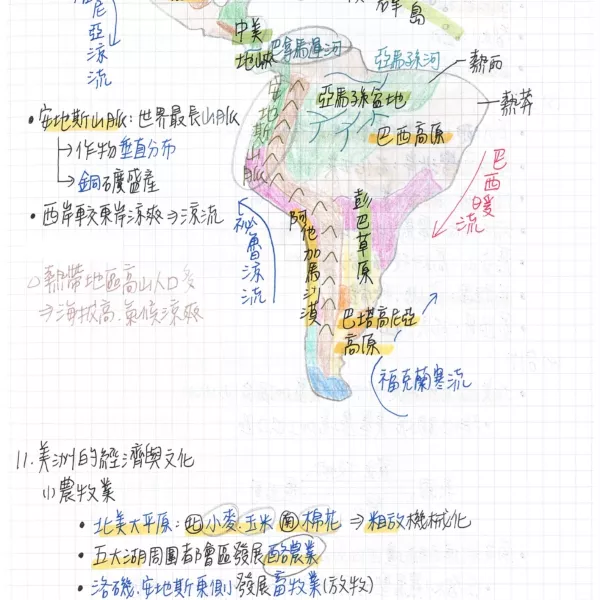 尼亞涼流
群島
中美地峽
巴拿馬運河
亞馬孫河
熱雨
熱莽
亞馬孫盆地
巴西高原
安地斯山脈
•安地斯山脈:世界最長山脈
→作物垂直分布
→銅礦盛產
•西岸較東岸涼爽⇒涼流
熱帶地區高山人口多
⇒海拔高、氣候涼爽
祕魯涼流
阿他加馬沙漠
彭巴草原
巴西暖流
巴塔哥尼亞高原
福克蘭寒流
11.美洲的經濟與文化
(1)農牧業
•北美大平原:北小麥、玉米 南棉花 ⇒粗放機械化
•五大湖周圍都會區發展酪農業
•洛磯、安地斯東側發展畜牧業(放牧)